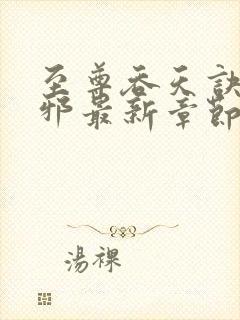 至尊吞天訣
邪最新章節
湯裸